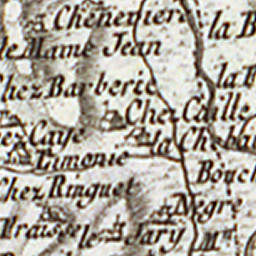 Chenevier
la B
le Mame Jean
Chez Barberie
la F
Chez Caille
Caye
la Chebau
Limonie
Bouch
Chez Ringuet
Negre
Fraisse
le Jary